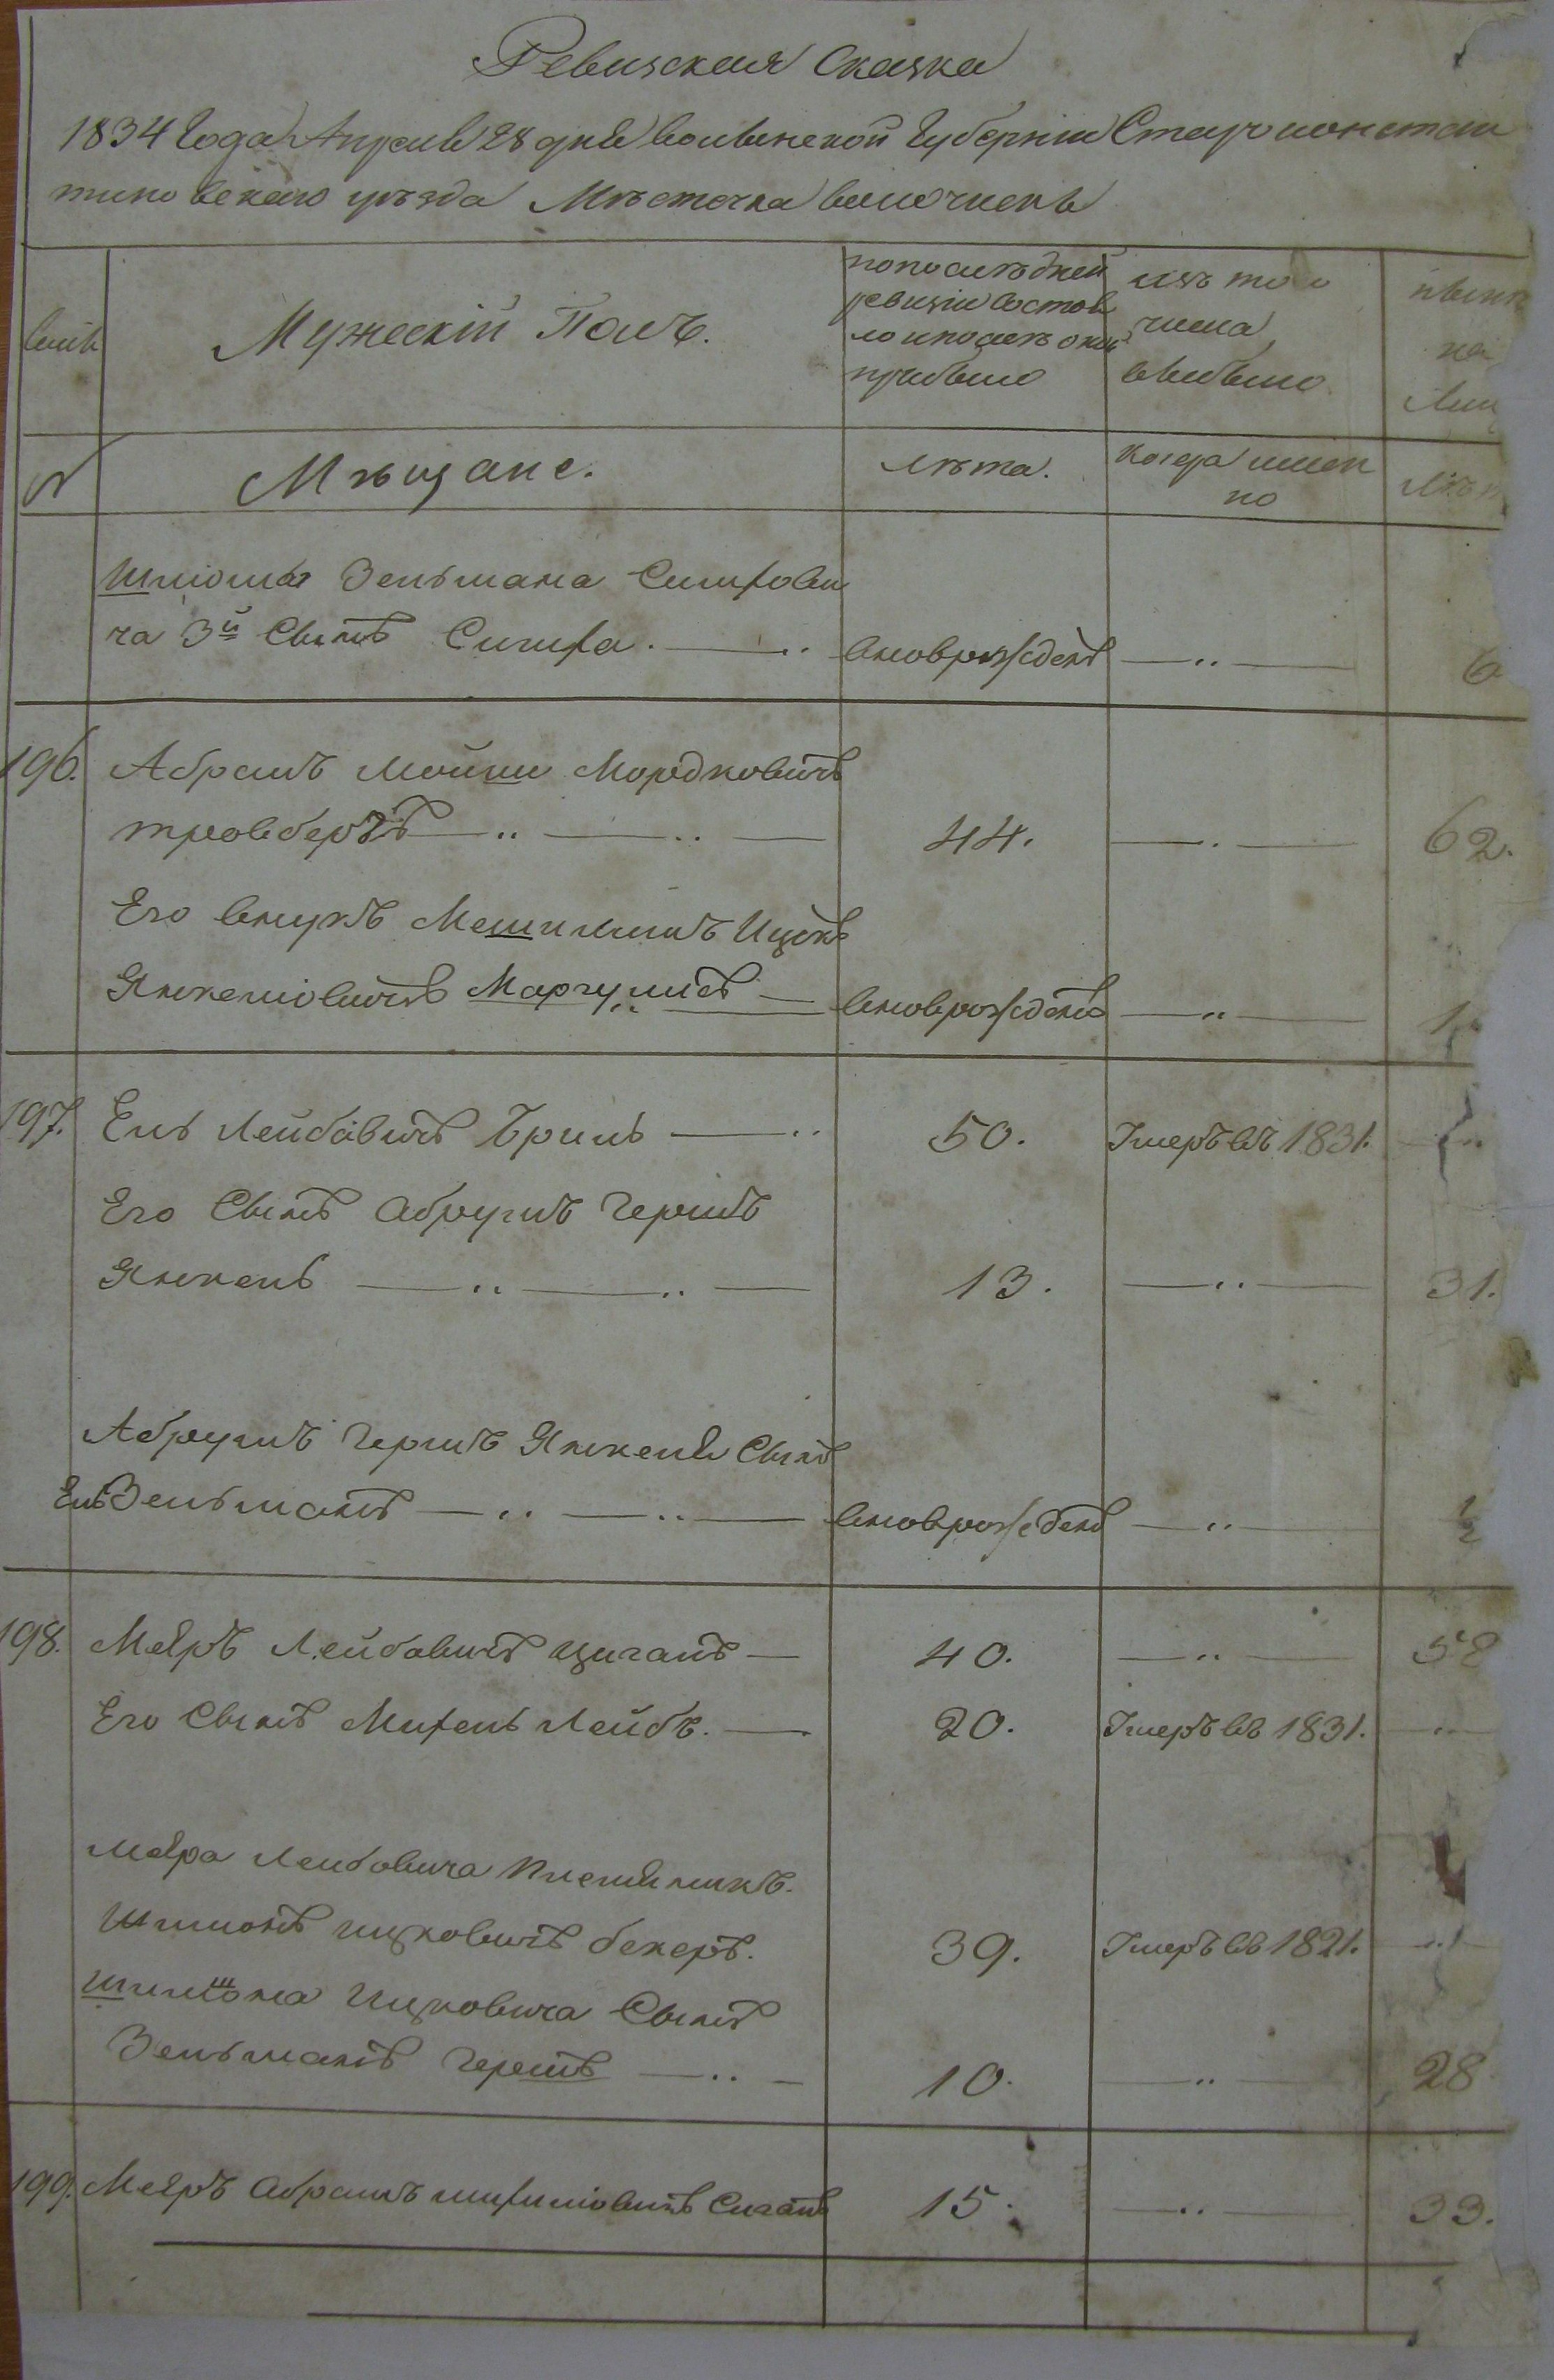 Ревизская Сказка
1834 Года Апреля 28 дня волынской Губернiи Староконстан
тиновскаго уѣзда Мѣстечка волочискъ
Мужескiй Полъ.
попослѣдней
ревизiи состоя
ло ипослѣ оной
прибыло
изъ то
числа
выбыло
нынѣ
на
лиц
№
Мѣщане.
Лѣта.
когда имен
но
Лѣт
Шлiомы Зельмана Симхови
ча 3й Сынъ Симха.
вновьрожденъ
6
196.
Абрамъ Мойши Мордковичъ
тровбергъ
44.
62.
Его внукъ Мешилимъ Ицекъ
Янкелiовичъ Маргулисъ
вновьрожденъ
1
197.
Ель Лейбовичъ Бриль
50.
Умеръ въ 1831.
Его Сынъ Абрумъ Гершъ
Янкель
13.
31.
Абрумъ Гершъ Янкеля Сынъ
Ель Зельманъ
вновьрожденъ
1/2
198.
Меяръ Лейбовичъ циганъ
40.
58
Его Сынъ Михель Лейбъ.
20.
Умеръ въ 1831.
Меяра Лейбовича племянникъ.
Шлиомъ ицковичъ бекеръ.
39.
Умеръ въ 1821.
Ицковича Сынъ
Зельманъ Гершъ
10.
28
199.
Меяръ Абрамъ Сиганъ
15.
33.